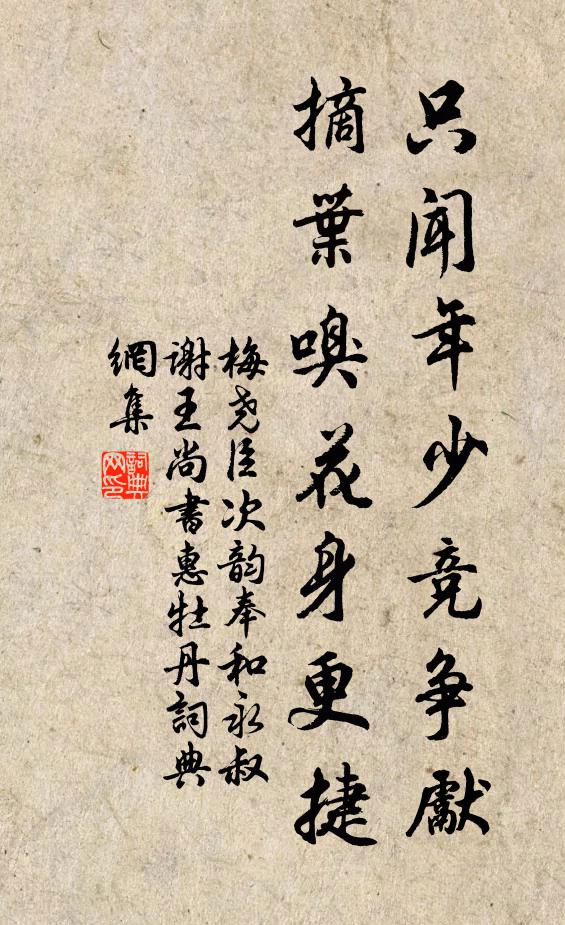 只闻年少竞争獻
摘葉嗅花身更捷
梅尧臣次韵奉和永叔
谢王尚書惠牡丹詞典
網集
詞典网印